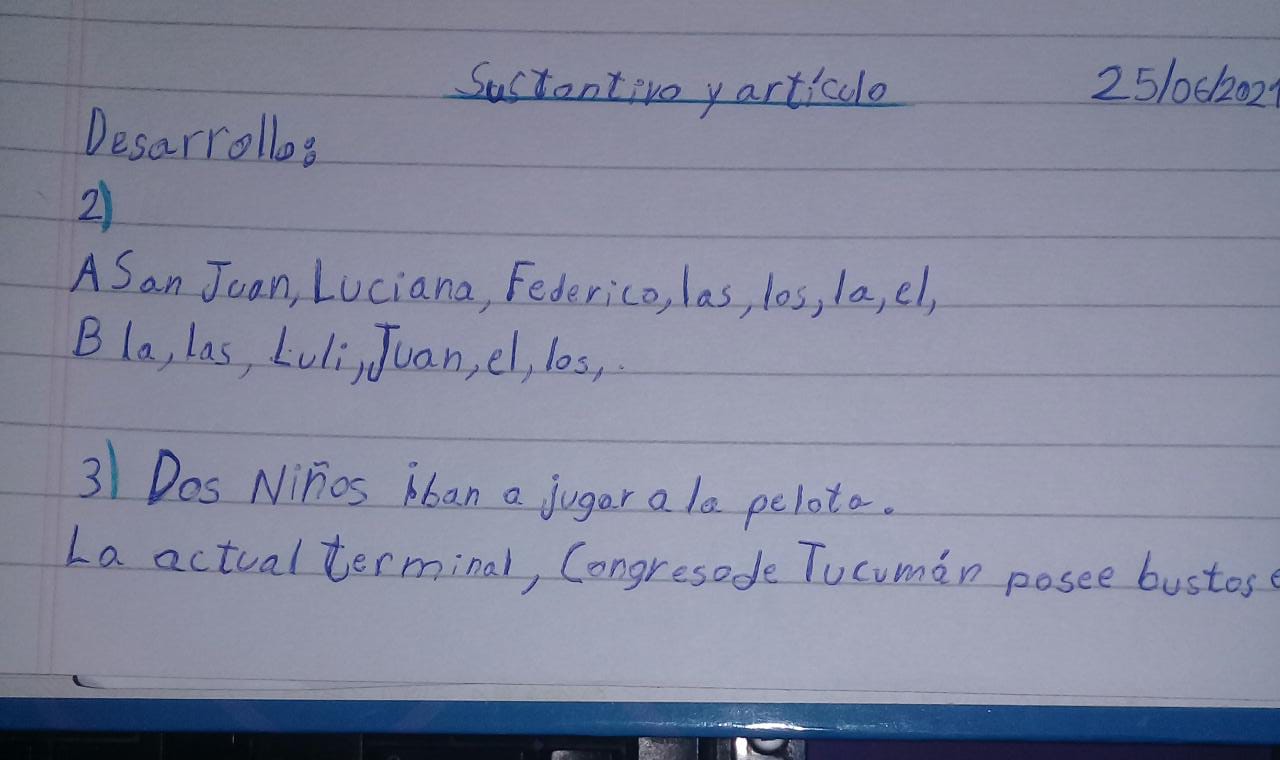 Sustantivo y artículo 25/06/2021
Desarrollo:
2)
A San Juan, Luciana, Federico, las, los, la, el,
B la, las, Luli, Juan, el, los, .
3) Dos Niños iban a jugar a la pelota.
La actual terminal, Congreso de Tucumán posee bustos